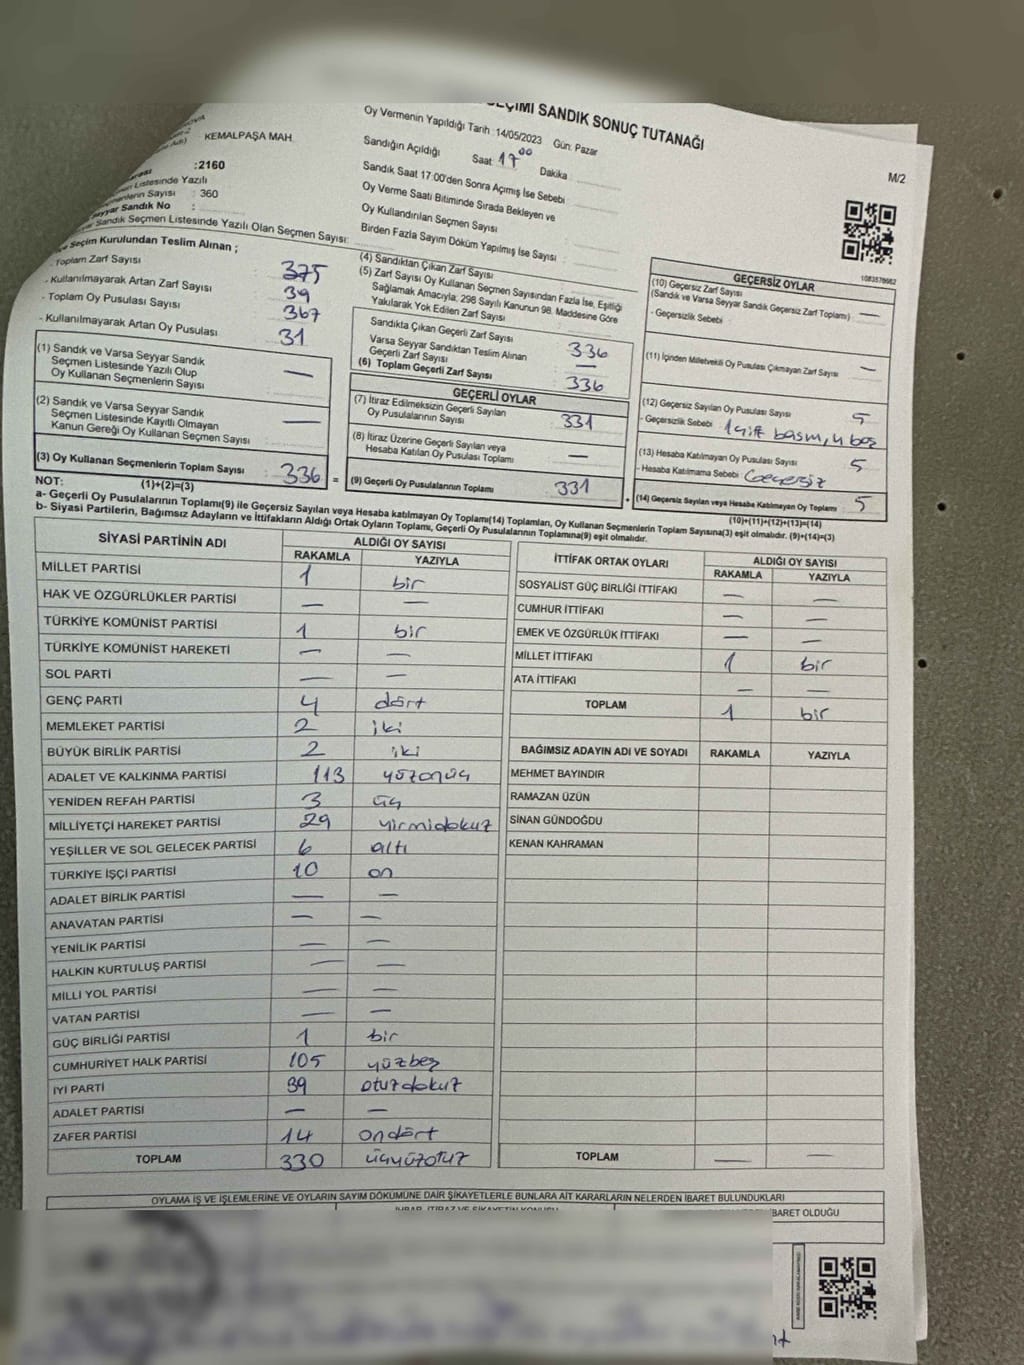 SEÇİMİ SANDIK SONUÇ TUTANAĞI
Oy Vermenin Yapıldığı Tarih :14/05/2023 Gün: Pazar
KEMALPAŞA MAH.
Sandığın Açıldığı Saat 17 00 Dakika
:2160
M/2
Sandık Saat 17:00'den Sonra Açımış İse Sebebi :
Listesinde Yazılı
Sayısı : 360
Oy Verme Saati Bitiminde Sırada Bekleyen ve
Oy Kullandırılan Seçmen Sayısı :
Seyyar Sandık No :
Sandık Seçmen Listesinde Yazılı Olan Seçmen Sayısı:
Birden Fazla Sayım Döküm Yapılmış İse Sayısı :
1083578662
Seçim Kurulundan Teslim Alınan ;
- Toplam Zarf Sayısı 375
- Kullanılmayarak Artan Zarf Sayısı 39
- Toplam Oy Pusulası Sayısı 367
- Kullanılmayarak Artan Oy Pusulası 31
(1) Sandık ve Varsa Seyyar Sandık
Seçmen Listesinde Yazılı Olup
Oy Kullanan Seçmenlerin Sayısı —
(2) Sandık ve Varsa Seyyar Sandık
Seçmen Listesinde Kayıtlı Olmayan
Kanun Gereği Oy Kullanan Seçmen Sayısı : —
(3) Oy Kullanan Seçmenlerin Toplam Sayısı : 336 =
(1)+(2)=(3)
(4) Sandıktan Çıkan Zarf Sayısı
(5) Zarf Sayısı Oy Kullanan Seçmen Sayısından Fazla İse, Eşitliği
Sağlamak Amacıyla; 298 Sayılı Kanunun 98. Maddesine Göre
Yakılarak Yok Edilen Zarf Sayısı :
Sandıkta Çıkan Geçerli Zarf Sayısı 336
Varsa Seyyar Sandıktan Teslim Alınan
Geçerli Zarf Sayısı —
(6) Toplam Geçerli Zarf Sayısı 336
GEÇERLİ OYLAR
(7) İtiraz Edilmeksizin Geçerli Sayılan
Oy Pusulalarının Sayısı : 331
(8) İtiraz Üzerine Geçerli Sayılan veya
Hesaba Katılan Oy Pusulası Toplamı : —
(9) Geçerli Oy Pusulalarının Toplamı : 331 +
GEÇERSİZ OYLAR
(10) Geçersiz Zarf Sayısı
(Sandık ve Varsa Seyyar Sandık Geçersiz Zarf Toplamı) : —
- Geçersizlik Sebebi :
(11) İçinden Milletvekili Oy Pusulası Çıkmayan Zarf Sayısı : —
(12) Geçersiz Sayılan Oy Pusulası Sayısı : 5
- Geçersizlik Sebebi : 1 çift basım, 4 boş
(13) Hesaba Katılmayan Oy Pusulası Sayısı : 5
- Hesaba Katılmama Sebebi : Geçersiz
(14) Geçersiz Sayılan veya Hesaba Katılmayan Oy Toplamı : 5
(10)+(11)+(12)+(13)=(14)
NOT:
a- Geçerli Oy Pusulalarının Toplamı(9) ile Geçersiz Sayılan veya Hesaba katılmayan Oy Toplamı(14) Toplamları, Oy Kullanan Seçmenlerin Toplam Sayısına(3) eşit olmalıdır. (9)+(14)=(3)
b- Siyasi Partilerin, Bağımsız Adayların ve İttifakların Aldığı Ortak Oyların Toplamı, Geçerli Oy Pusulalarının Toplamına(9) eşit olmalıdır.
SİYASİ PARTİNİN ADI ALDIĞI OY SAYISI
RAKAMLA YAZIYLA
MİLLET PARTİSİ 1 bir
HAK VE ÖZGÜRLÜKLER PARTİSİ — —
TÜRKİYE KOMÜNİST PARTİSİ 1 bir
TÜRKİYE KOMÜNİST HAREKETİ — —
SOL PARTİ — —
GENÇ PARTİ 4 dört
MEMLEKET PARTİSİ 2 iki
BÜYÜK BİRLİK PARTİSİ 2 iki
ADALET VE KALKINMA PARTİSİ 113 yüzonüç
YENİDEN REFAH PARTİSİ 3 üç
MİLLİYETÇİ HAREKET PARTİSİ 29 yirmidokuz
YEŞİLLER VE SOL GELECEK PARTİSİ 6 altı
TÜRKİYE İŞÇİ PARTİSİ 10 on
ADALET BİRLİK PARTİSİ — —
ANAVATAN PARTİSİ — —
YENİLİK PARTİSİ — —
HALKIN KURTULUŞ PARTİSİ — —
MİLLİ YOL PARTİSİ — —
VATAN PARTİSİ — —
GÜÇ BİRLİĞİ PARTİSİ 1 bir
CUMHURİYET HALK PARTİSİ 105 yüzbeş
İYİ PARTİ 39 otuzdokuz
ADALET PARTİSİ — —
ZAFER PARTİSİ 14 ondört
TOPLAM 330 üçyüzotuz
İTTİFAK ORTAK OYLARI ALDIĞI OY SAYISI
RAKAMLA YAZIYLA
SOSYALİST GÜÇ BİRLİĞİ İTTİFAKI — —
CUMHUR İTTİFAKI — —
EMEK VE ÖZGÜRLÜK İTTİFAKI — —
MİLLET İTTİFAKI 1 bir
ATA İTTİFAKI — —
TOPLAM 1 bir
BAĞIMSIZ ADAYIN ADI VE SOYADI RAKAMLA YAZIYLA
MEHMET BAYINDIR
RAMAZAN ÜZÜN
SİNAN GÜNDOĞDU
KENAN KAHRAMAN
TOPLAM — —
OYLAMA İŞ VE İŞLEMLERİNE VE OYLARIN SAYIM DÖKÜMÜNE DAİR ŞİKAYETLERLE BUNLARA AİT KARARLARIN NELERDEN İBARET BULUNDUKLARI
İHBAR, İTİRAZ VE ŞİKAYETİN KONUSU
İBARET OLDUĞU